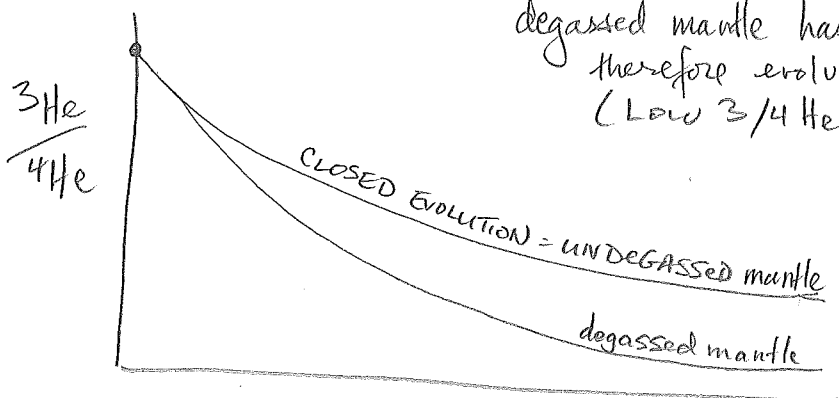 degassed mantle ha
therefore evolu
(Low 3/4 He
3He
4He
CLOSED EVOLUTION = UNDEGASSED mantle
degassed mantle